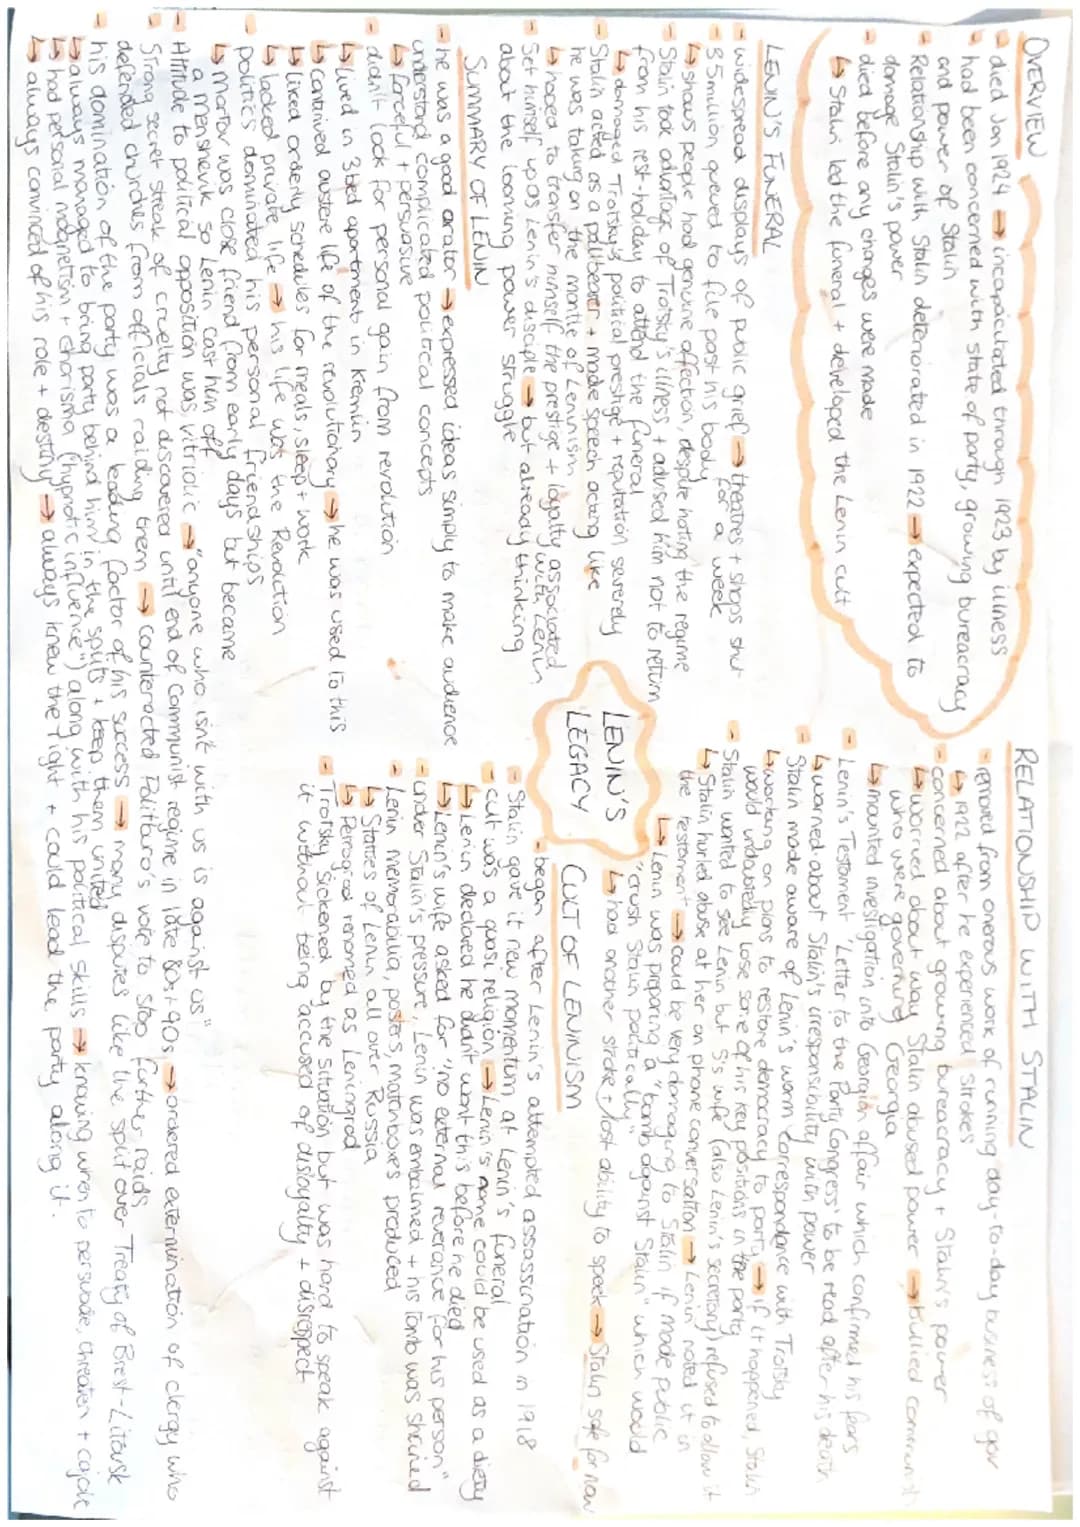 OVERVIEW
- died Jan 1924 → incapacitated through 1923 by illness
- had been concerned with state of party, growing bureacracy
and power of Stalin
- Relationship with Stalin deteriorated in 1922 → expected to
damage Stalin's power
- died before any changes were made
↳ Stalin led the funeral + developed the Lenin cult
LENIN'S FUNERAL
- widespread displays of public grief → theatres + shops shut
for a week
- 3.5million queued to file past his body
↳ shows people had genuine affection, despite hating the regime
- Stalin took advantage of Trotsky's illness + advised him not to return
from his rest-holiday to attend the funeral
↳ damaged Trotsky's political prestige + reputation severely
- Stalin acted as a pallbearer + made speech acting like
he was taking on the mantle of Leninism
↳ hoped to transfer himself the prestige + loyalty associated with Lenin
- Set himself up as Lenin's disciple → but already thinking
about the looming power struggle
SUMMARY OF LENIN
- he was a good orator → expressed ideas simply to make audience
understand complicated political concepts
↳ forceful + persuasive
- didn't look for personal gain from revolution
↳ lived in 3 bed apartment in Kremlin
↳ contrived austere life of the revolutionary → he was used to this
↳ lived orderly schedules for meals, sleep + work
↳ lacked private life → his life was the Revolution
- politics dominated his personal friendships
↳ martov was close friend from early days but became
a menshevik so Lenin cast him off
- Attitude to political opposition was vitriolic → "anyone who isn't with us is against us"
- Strong secret streak of cruelty not discovered until end of Communist regime in late 80s + 90s → ordered extermination of clergy who
defended churches from officials raiding them → counteracted Politburo's vote to stop further raids
- his domination of the party was a leading factor of his success → many disputes like the split over Treaty of Brest-Litovsk
↳ always managed to bring party behind him in the splits + keep them united
↳ had personal magnetism + charisma ("hypnotic influence") along with his political skills → knowing when to persuade, threaten + cajole
↳ always convinced of his role + destiny → always knew the right + could lead the party along it.
LENIN'S
LEGACY
RELATIONSHIP WITH STALIN
- removed from onerous work of running day-to-day business of gov
↳ 1922 after he experienced strokes
- concerned about growing bureacracy + Stalin's power
↳ worried about way Stalin abused power → bullied communists
who were governing Georgia
↳ mounted investigation into Georgian affair which confirmed his fears
- Lenin's Testament 'Letter to the Party Congress' to be read after his death
↳ warned about Stalin's irresponsibility with power
- Stalin made aware of Lenin's warm correspondence with Trotsky
↳ working on plans to restore democracy to party → if it happened, Stalin
would undoubtedly lose some of his key positions in the party
- Stalin wanted to see Lenin but S's wife (also Lenin's secretary) refused to allow it
↳ Stalin hurled abuse at her on phone conversation → Lenin noted it in
the testament → could be very damaging to Stalin if made public
↳ Lenin was preparing a "bomb against Stalin" which would
"crush Stalin politically"
↳ had another stroke + lost ability to speak → Stalin safe for now
CULT OF LENINISM
- began after Lenin's attempted assassination in 1918
- Stalin gave it new momentum at Lenin's funeral
- cult was a quasi religion → Lenin's name could be used as a diety
↳ Lenin declared he didn't want this before he died
↳ Lenin's wife asked for "no external reverance for his person"
- under Stalin's pessure, Lenin was embalmed + his tomb was shrined
- Lenin memorabilia, posters, matchboxes produced
↳ Statues of Lenin all over Russia
↳ Petrograd renamed as Leningrad
- Trotsky sickened by the situation but was hard to speak against
it without being accused of disloyalty + disrespect